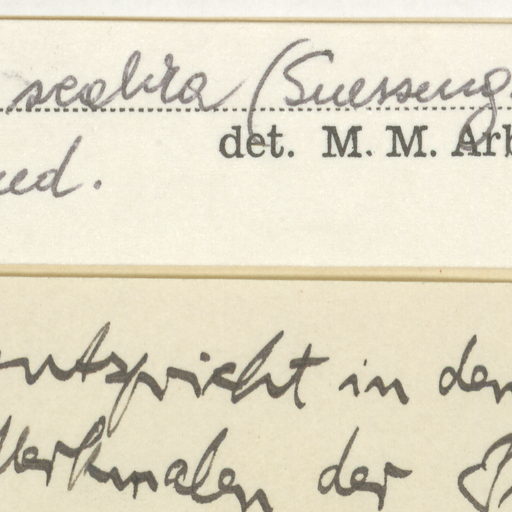 scabra (Suesseng.
det. M. M. Arb
ed.
entspricht in den
Merkmalen der